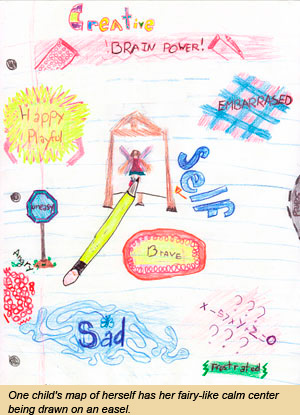 Creative
BRAIN POWER!
Happy
Playful
EMBARRASED
Self
uneasy
Angry
BRAVE
Sad
? ? ?
? ? ?
Frustrated
One child's map of herself has her fairy-like calm center
being drawn on an easel.